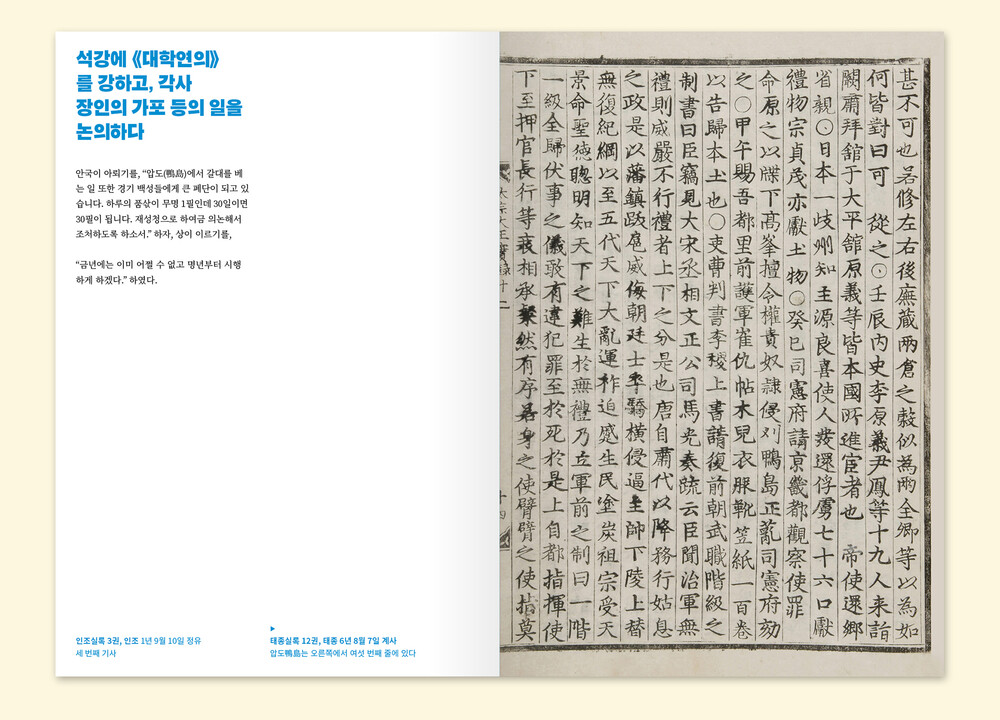 석강에 《대학연의》
를 강하고, 각사
장인의 가포 등의 일을
논의하다
안국이 아뢰기를, “압도(鴨島)에서 갈대를 베
는 일 또한 경기 백성들에게 큰 폐단이 되고 있
습니다. 하루의 품삯이 무명 1필인데 30일이면
30필이 됩니다. 재성청으로 하여금 의논해서
조처하도록 하소서.” 하자, 상이 이르기를,
“금년에는 이미 어쩔 수 없고 명년부터 시행
하게 하겠다.” 하였다.
인조실록 3권, 인조 1년 9월 10일 정유
세 번째 기사
▶
태종실록 12권, 태종 6년 8월 7일 계사
압도鴨島는 오른쪽에서 여섯 번째 줄에 있다
甚不可也若修左右後廡蔵兩倉之穀似為兩全卿等以為如
何皆對曰可 從之○壬辰內史李原義尹鳳等十九人来詣
闕肅拜舘于大平舘原義等皆本國所進宦者也 帝使還鄉
省親○日本一歧州知主源良喜使人發還俘虜七十六口獻
禮物宗貞茂亦獻土物○癸巳司憲府請京畿都觀察使罪
命原之以牒下高峯擅令權貴奴隸侵刈鴨島正亂司憲府劾
之○甲午賜吾都里前護軍崔仇帖木兒衣服靴笠紙一百卷
以告歸本土也○吏曹判書李稷上書請復前朝武職階級之
制書曰臣竊見大宋丞相文正公司馬光奏疏云臣聞治軍無
禮則威嚴不行禮者上下之分是也唐自肅代以降務行姑息
之政是以藩鎮跋扈威侮朝廷士卒驕橫侵逼主帥下陵上替
無復紀綱以至五代天下大亂運祚迫蹙生民塗炭祖宗受天
景命聖德聰明知天下之難生於無禮乃立軍前之制曰一階
一級全歸伏事之儀敢有違犯罪至於死於是上自都指揮使
下至押官長行等衰相承粲然有序若身之使臂臂之使指莫